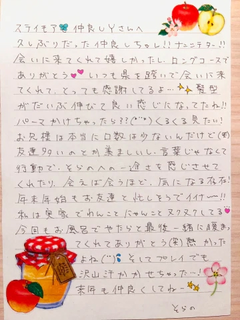 スライモア 仲良しYさんへ
久しぶりだった仲良しちゃん!!ナニナター!!
会いに来てくれて嬉しかったし、ロングコースで
ありがとう いつも最を跨いで会いに来
てくれて、とっても感謝してるよー 髪型
がだいぶ伸びて良い感じになってたね!!
パーマかけちゃったら?! くるくる見たい!
お兄様は本当に口数は少ないんだけど(笑)
友達99いのとが羨ましいし、言葉じゃなくて
行動で、そらのへの一途さを感じさせて
くれたり、会えば会うほど、気になる存在!
毎末年始もお友達と忙しそうでイイナー!!
私は実家でわんことにゃんことヌクヌクしてる
今回もお風呂でやたらと最後一緒に入
ってくれてありがとう(笑)熱かった
よね そしてプレイでも
沢山汗かかせちゃったー!
来年も仲良くしてねー
そらの